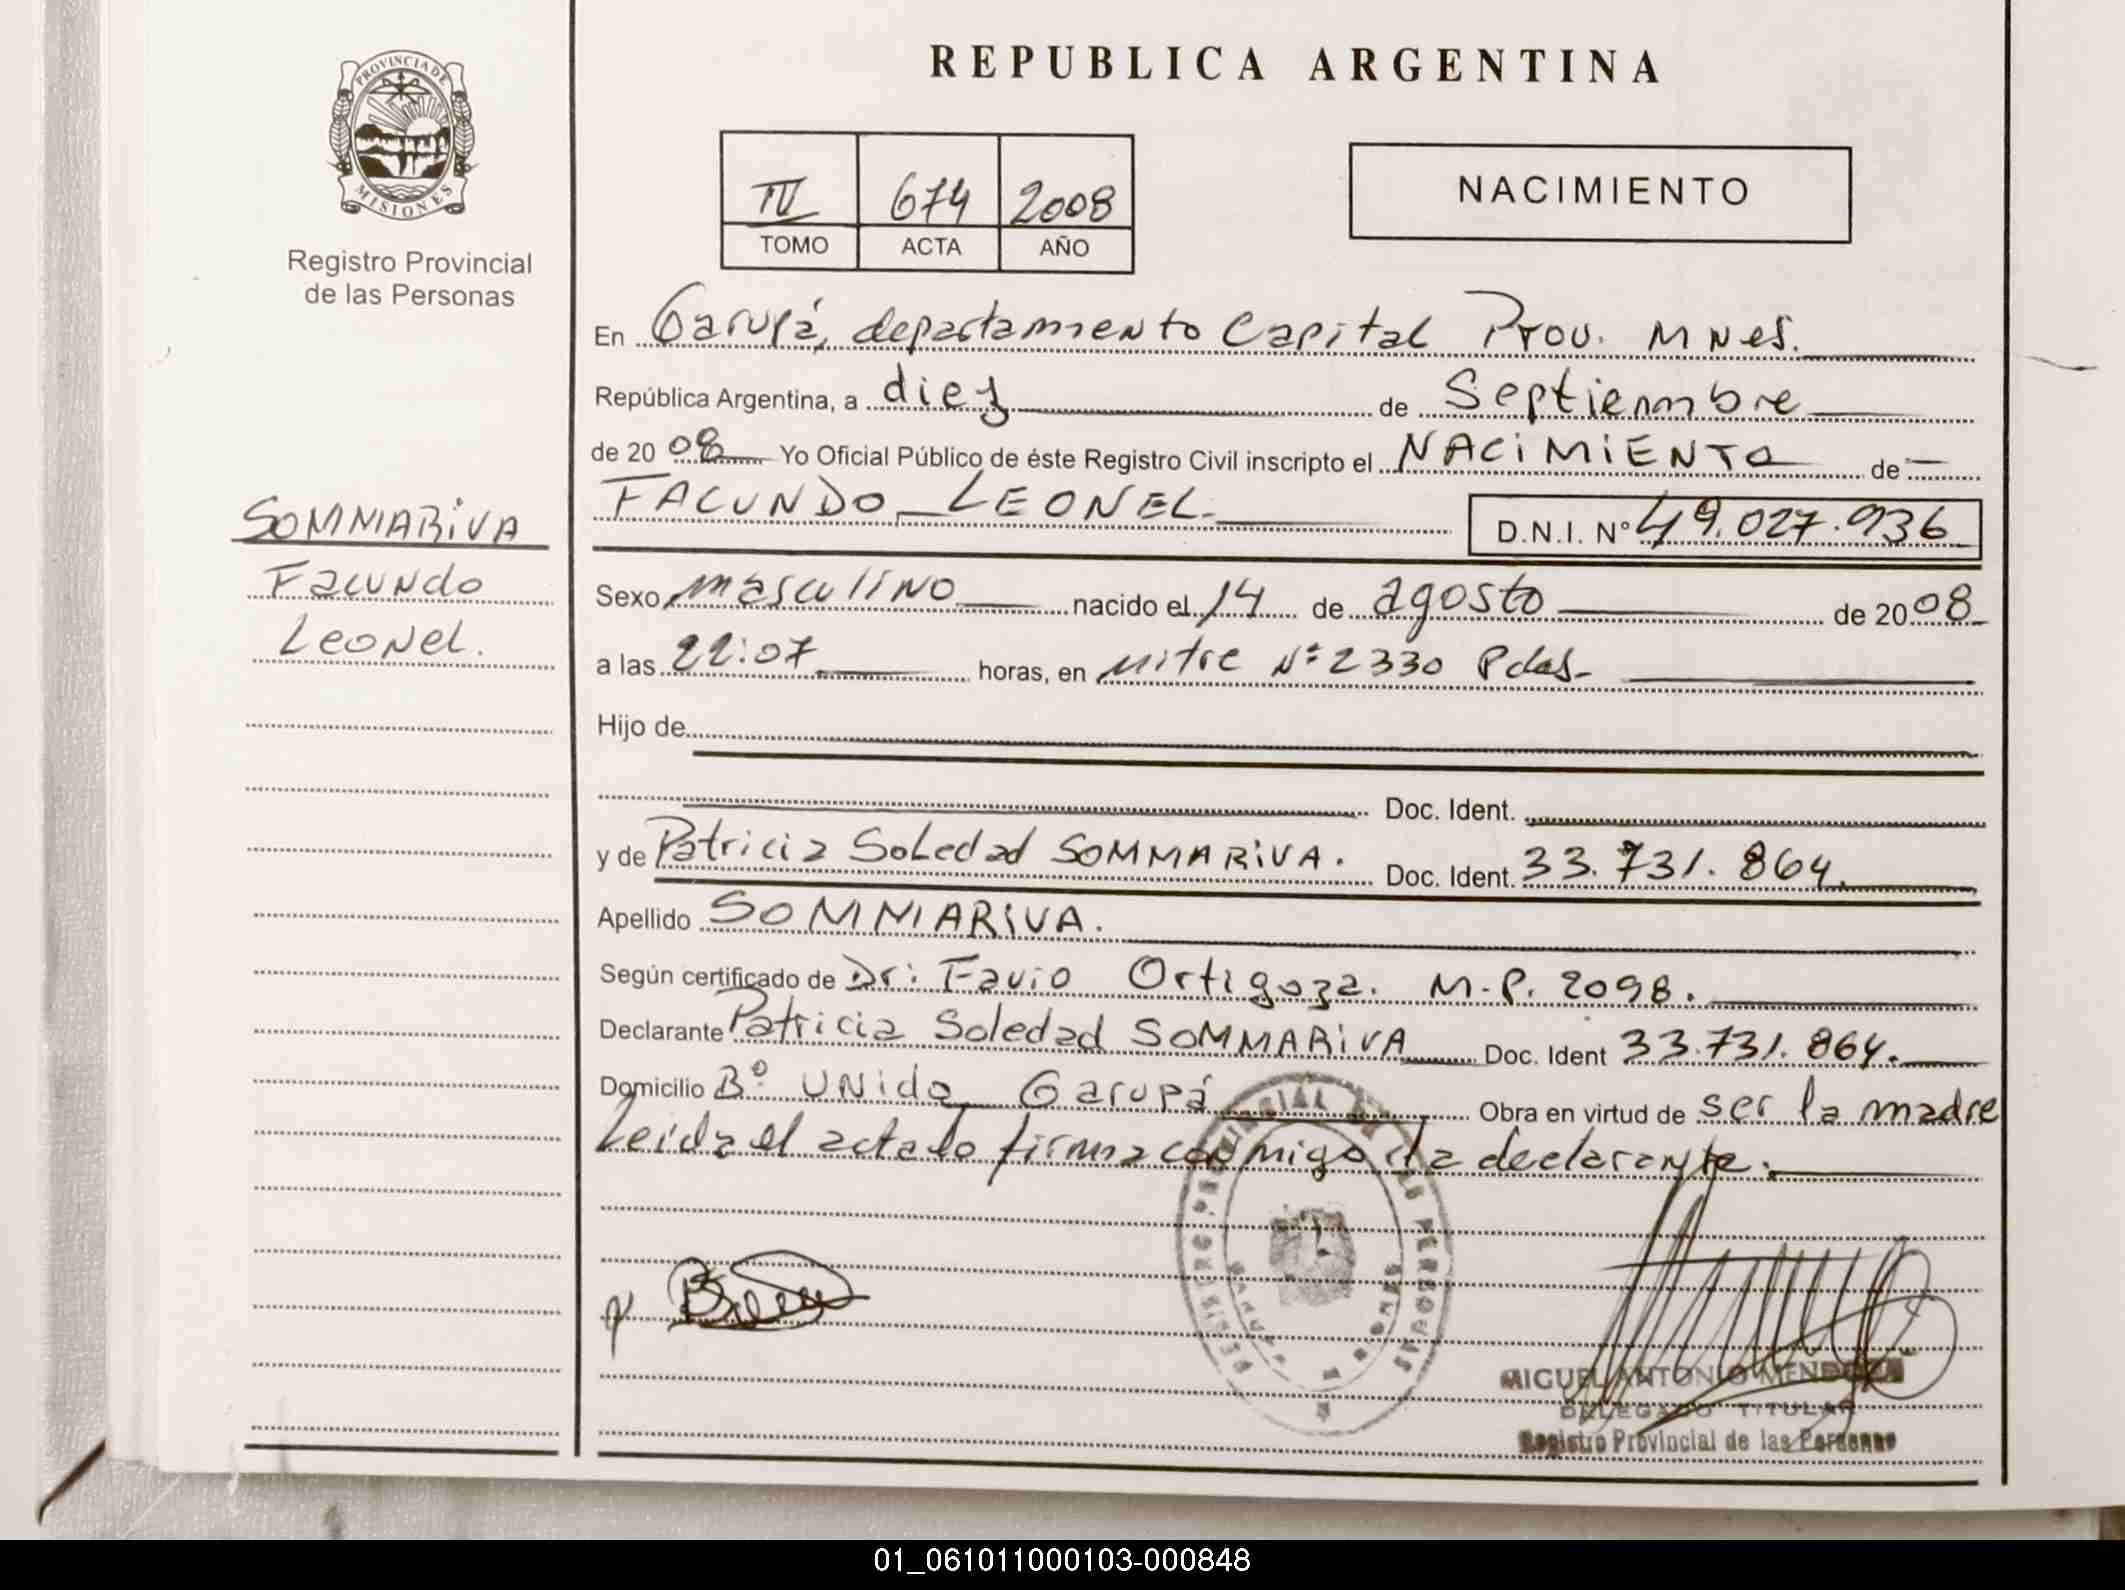 REPUBLICA ARGENTINA
PROVINCIA DE
MISIONES
Registro Provincial
de las Personas
TOMO ACTA AÑO
IV 674 2008
NACIMIENTO
En Garupá, departamento Capital Prov. Mnes.
República Argentina, a diez de Septiembre
de 2008 Yo Oficial Público de éste Registro Civil inscripto el NACIMIENTO de
FACUNDO LEONEL. D.N.I. Nº 49.027.936
SOMMARIVA
Facundo
Leonel.
Sexo masculino nacido el 14 de agosto de 2008
a las 22:07 horas, en Mitre Nº 2330 Pdas.
Hijo de
Doc. Ident.
y de Patricia Soledad SOMMARIVA. Doc. Ident. 33.731.864.
Apellido SOMMARIVA.
Según certificado de Dr: Favio Ortigoza. M.P. 2098.
Declarante Patricia Soledad SOMMARIVA Doc. Ident 33.731.864.
Domicilio Bº Unido Garupá Obra en virtud de ser la madre
Leída el acta lo firma conmigo la declarante.
REGISTRO PROVINCIAL DE LAS PERSONAS
MIGUEL ANTONIO MENDOZA
DELEGADO TITULAR
Registro Provincial de las Personas
01_061011000103-000848